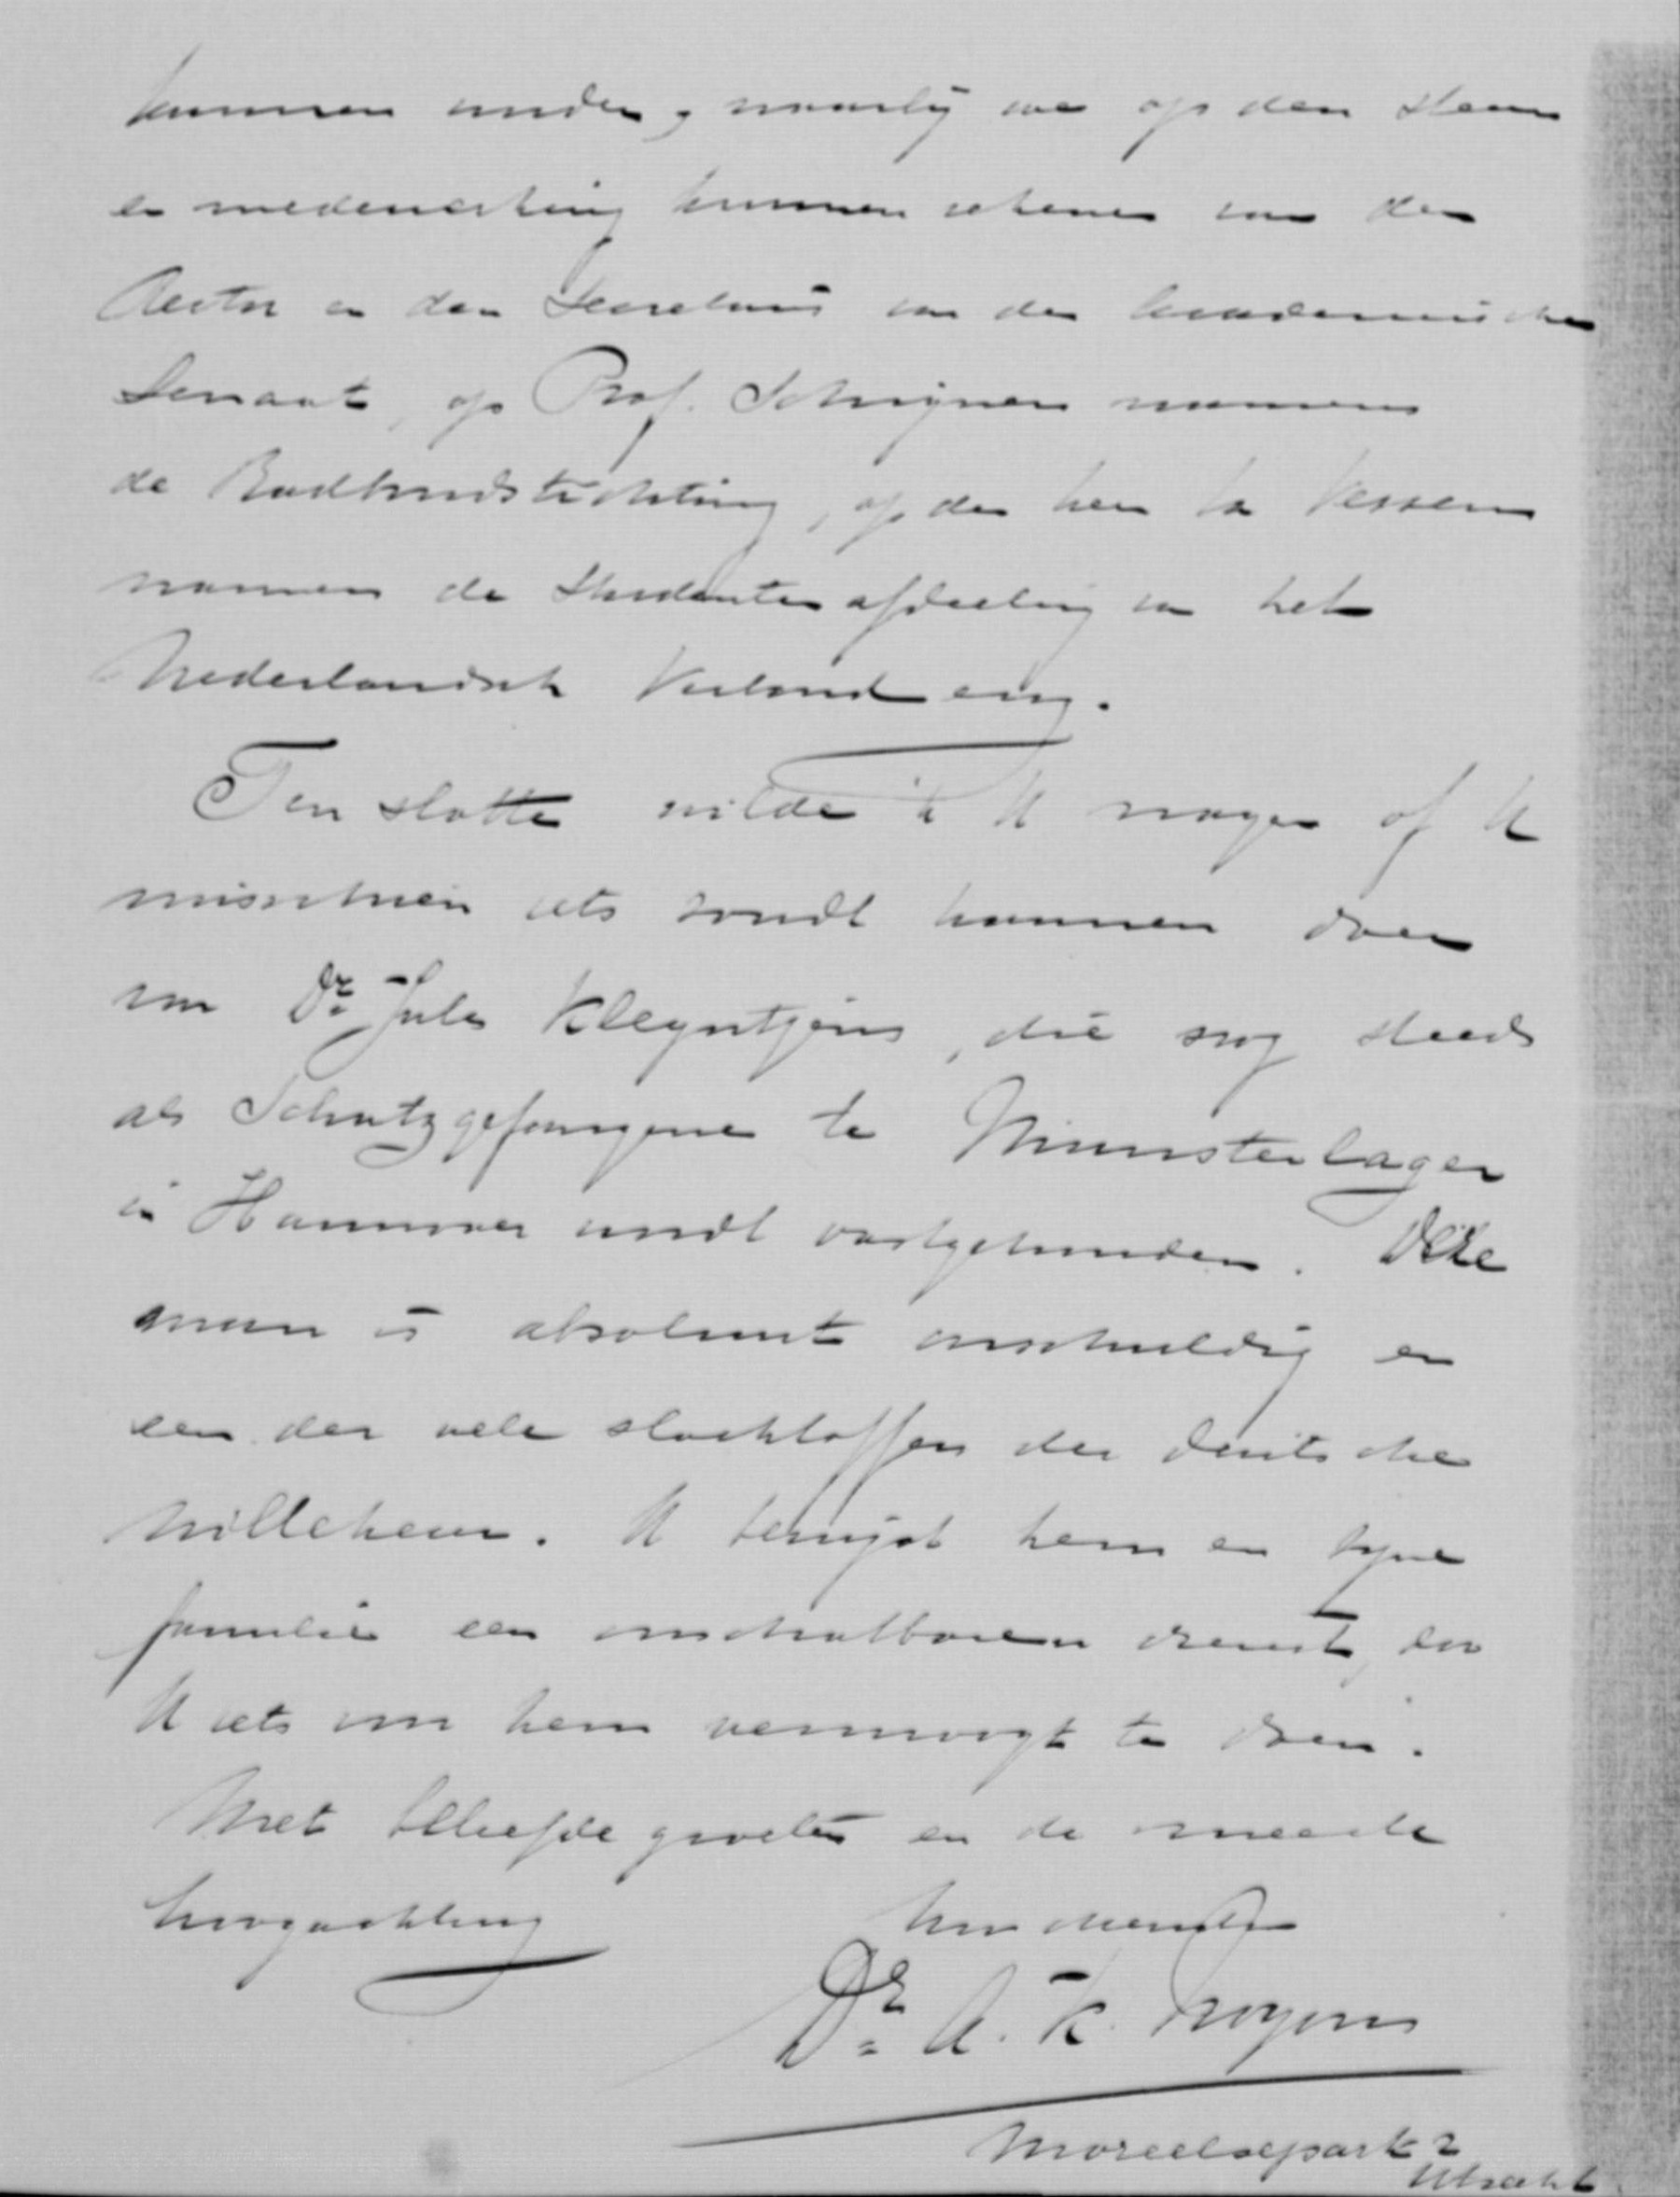 kunnen vinden, waarbij we op den steun
en medewerking kunnen rekenen van den
Rector en den Secretaris van den Academischen
Senaat, op Prof. Schrijnen namens
de Radboudstichting, op den heer v. Vessem
namens de Studentenafdeeling van het
Nederlandsch Verbond enz.
Ten slotte wilde ik U vragen of U
misschien iets zoudt kunnen doen
voor Dr. Jules Kleyntjens, die nog steeds
als Schutzgefangene te Munsterlager
in Hannover wordt vastgehouden. Deze
man is absoluut onschuldig en
een der vele slachtoffers der Duitsche
willekeur. U bewijst hem en zijne
familie een onschatbaren dienst, zoo
U iets voor hem vermoogt te doen.
Met beleefde groeten en de meeste
hoogachting Uw dienstw.
Dr. A. K.
Moreelsepark 2
Utrecht